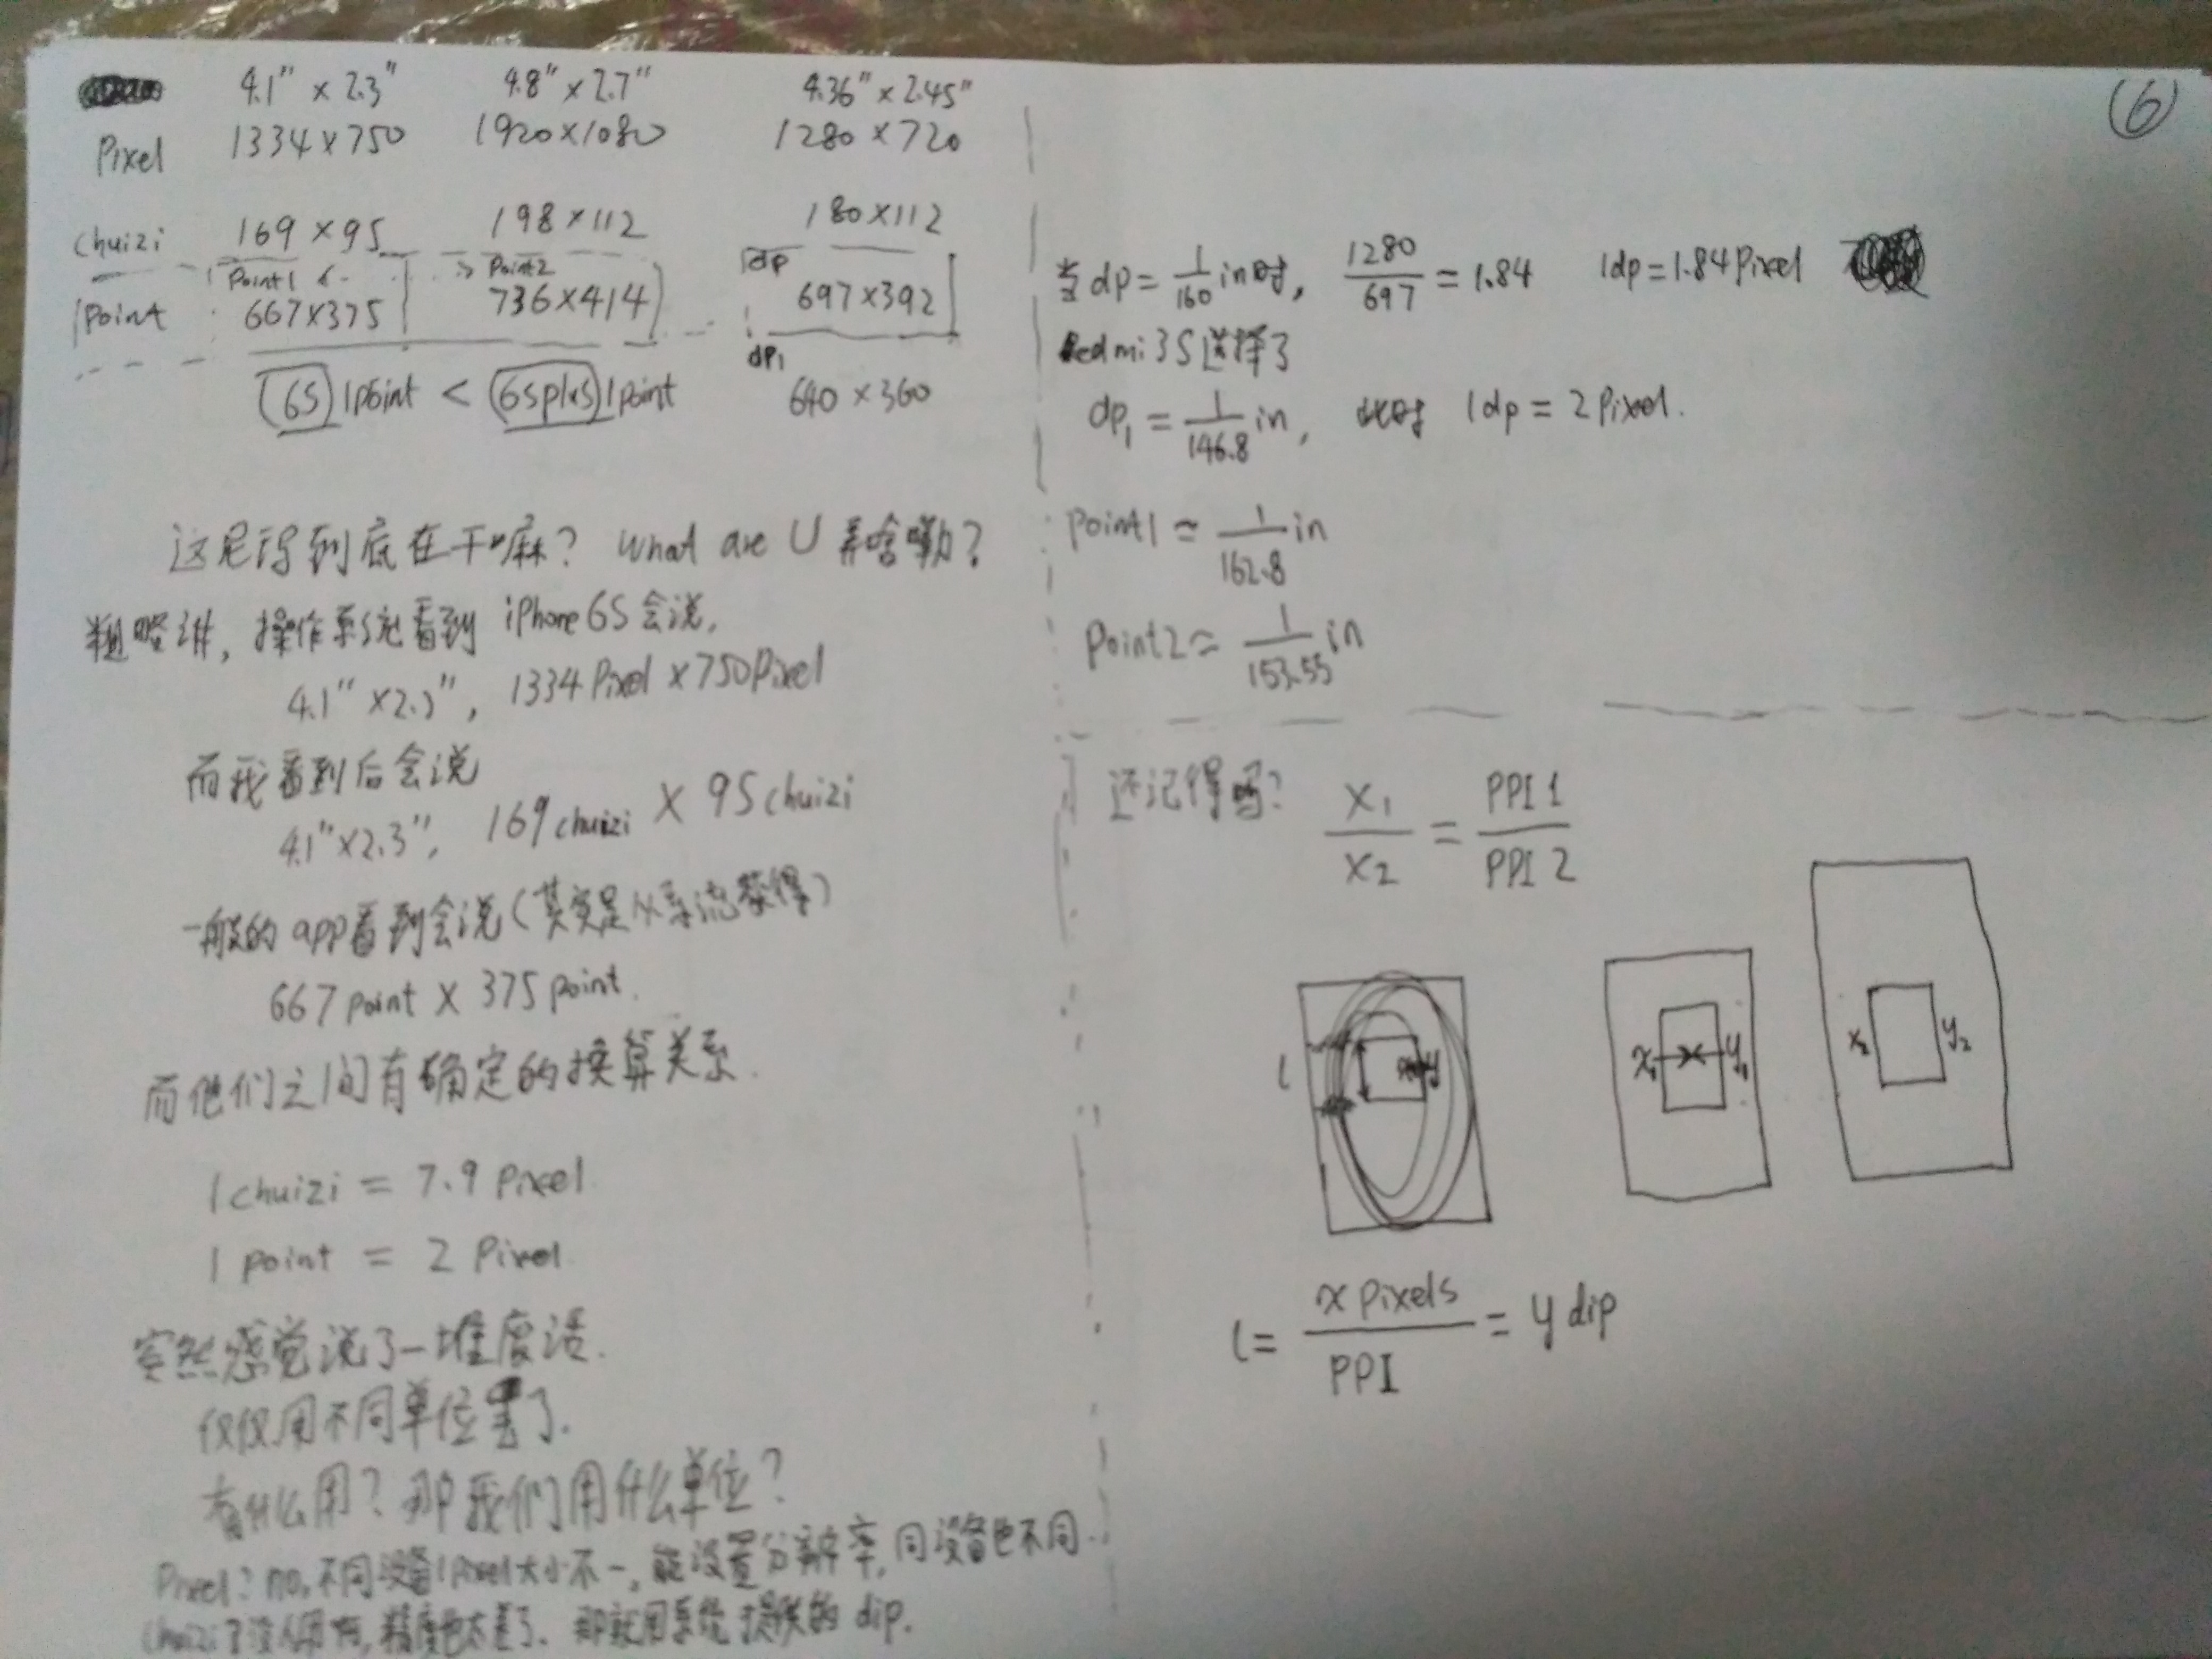 4.1" × 2.3"  4.8" × 2.7"  4.36" × 2.45"
Pixel  1334×750  1920×1080  1280×720
chuizi  169×95  198×112  180×112
Point1  Point2  dp
1point  667×375  736×414  697×392
dp1
6S 1point < 6Splus 1point  640×360
这尼玛到底在干嘛? What are U 弄啥嘞?
粗略讲, 操作系统看到 iPhone6S 会说,
4.1" × 2.3", 1334 Pixel × 750 Pixel
而我看到后会说
4.1"×2.3", 169 chuizi × 95 chuizi
一般的 app看到会说 (其实是从系统获得)
667 point × 375 point.
而他们之间有确定的换算关系.
1 chuizi = 7.9 Pixel
1 point = 2 Pixel.
突然感觉说了一堆废话.
仅仅用不同单位 了.
有什么用? 那我们用什么单位?
Pixel? no, 不同设备1pixel大小不一, 能设置分辨率, 同设备也不同.
chuizi? 没人用啊, 精度也太差了. 那就用系统提供的 dip.
⑥
当 dp = 1/160 in时, 1280/697 = 1.84  1dp = 1.84 Pixel
Redmi 3S 选择了
dp1 = 1/146.8 in, 此时 1dp = 2 Pixel.
Point1 ≈ 1/162.8 in
Point2 ≈ 1/153.55 in
还记得吗? X1/X2 = PPI 1/PPI 2
l  y  x1  y1  x2  y2
l = x pixels/PPI = y dip